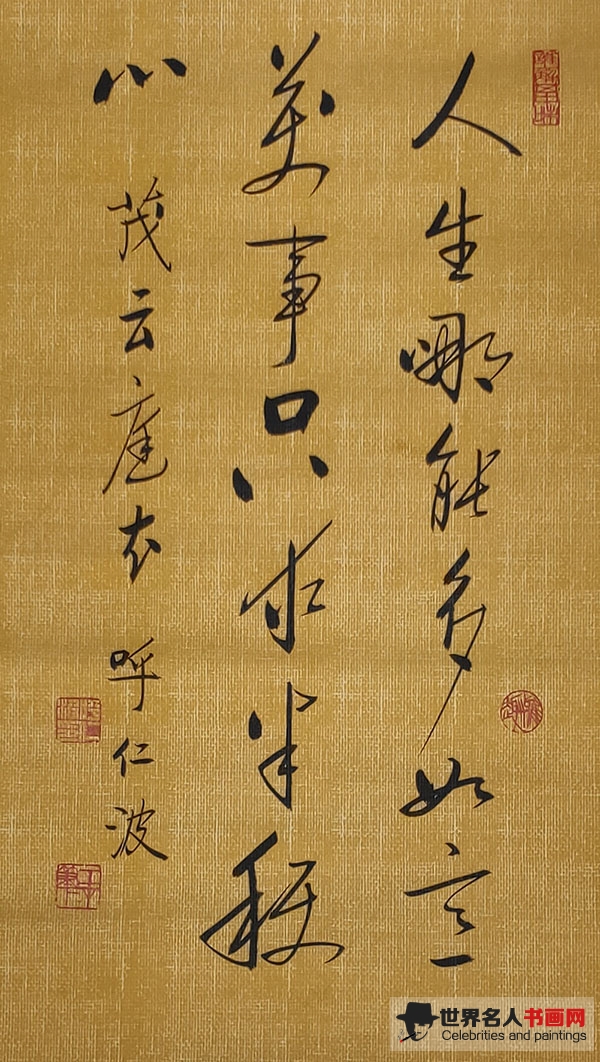 人生哪能多如意
萬事只求半称
心 茂云庭 呼仁波
世界名人书画网
Celebrities and paintings